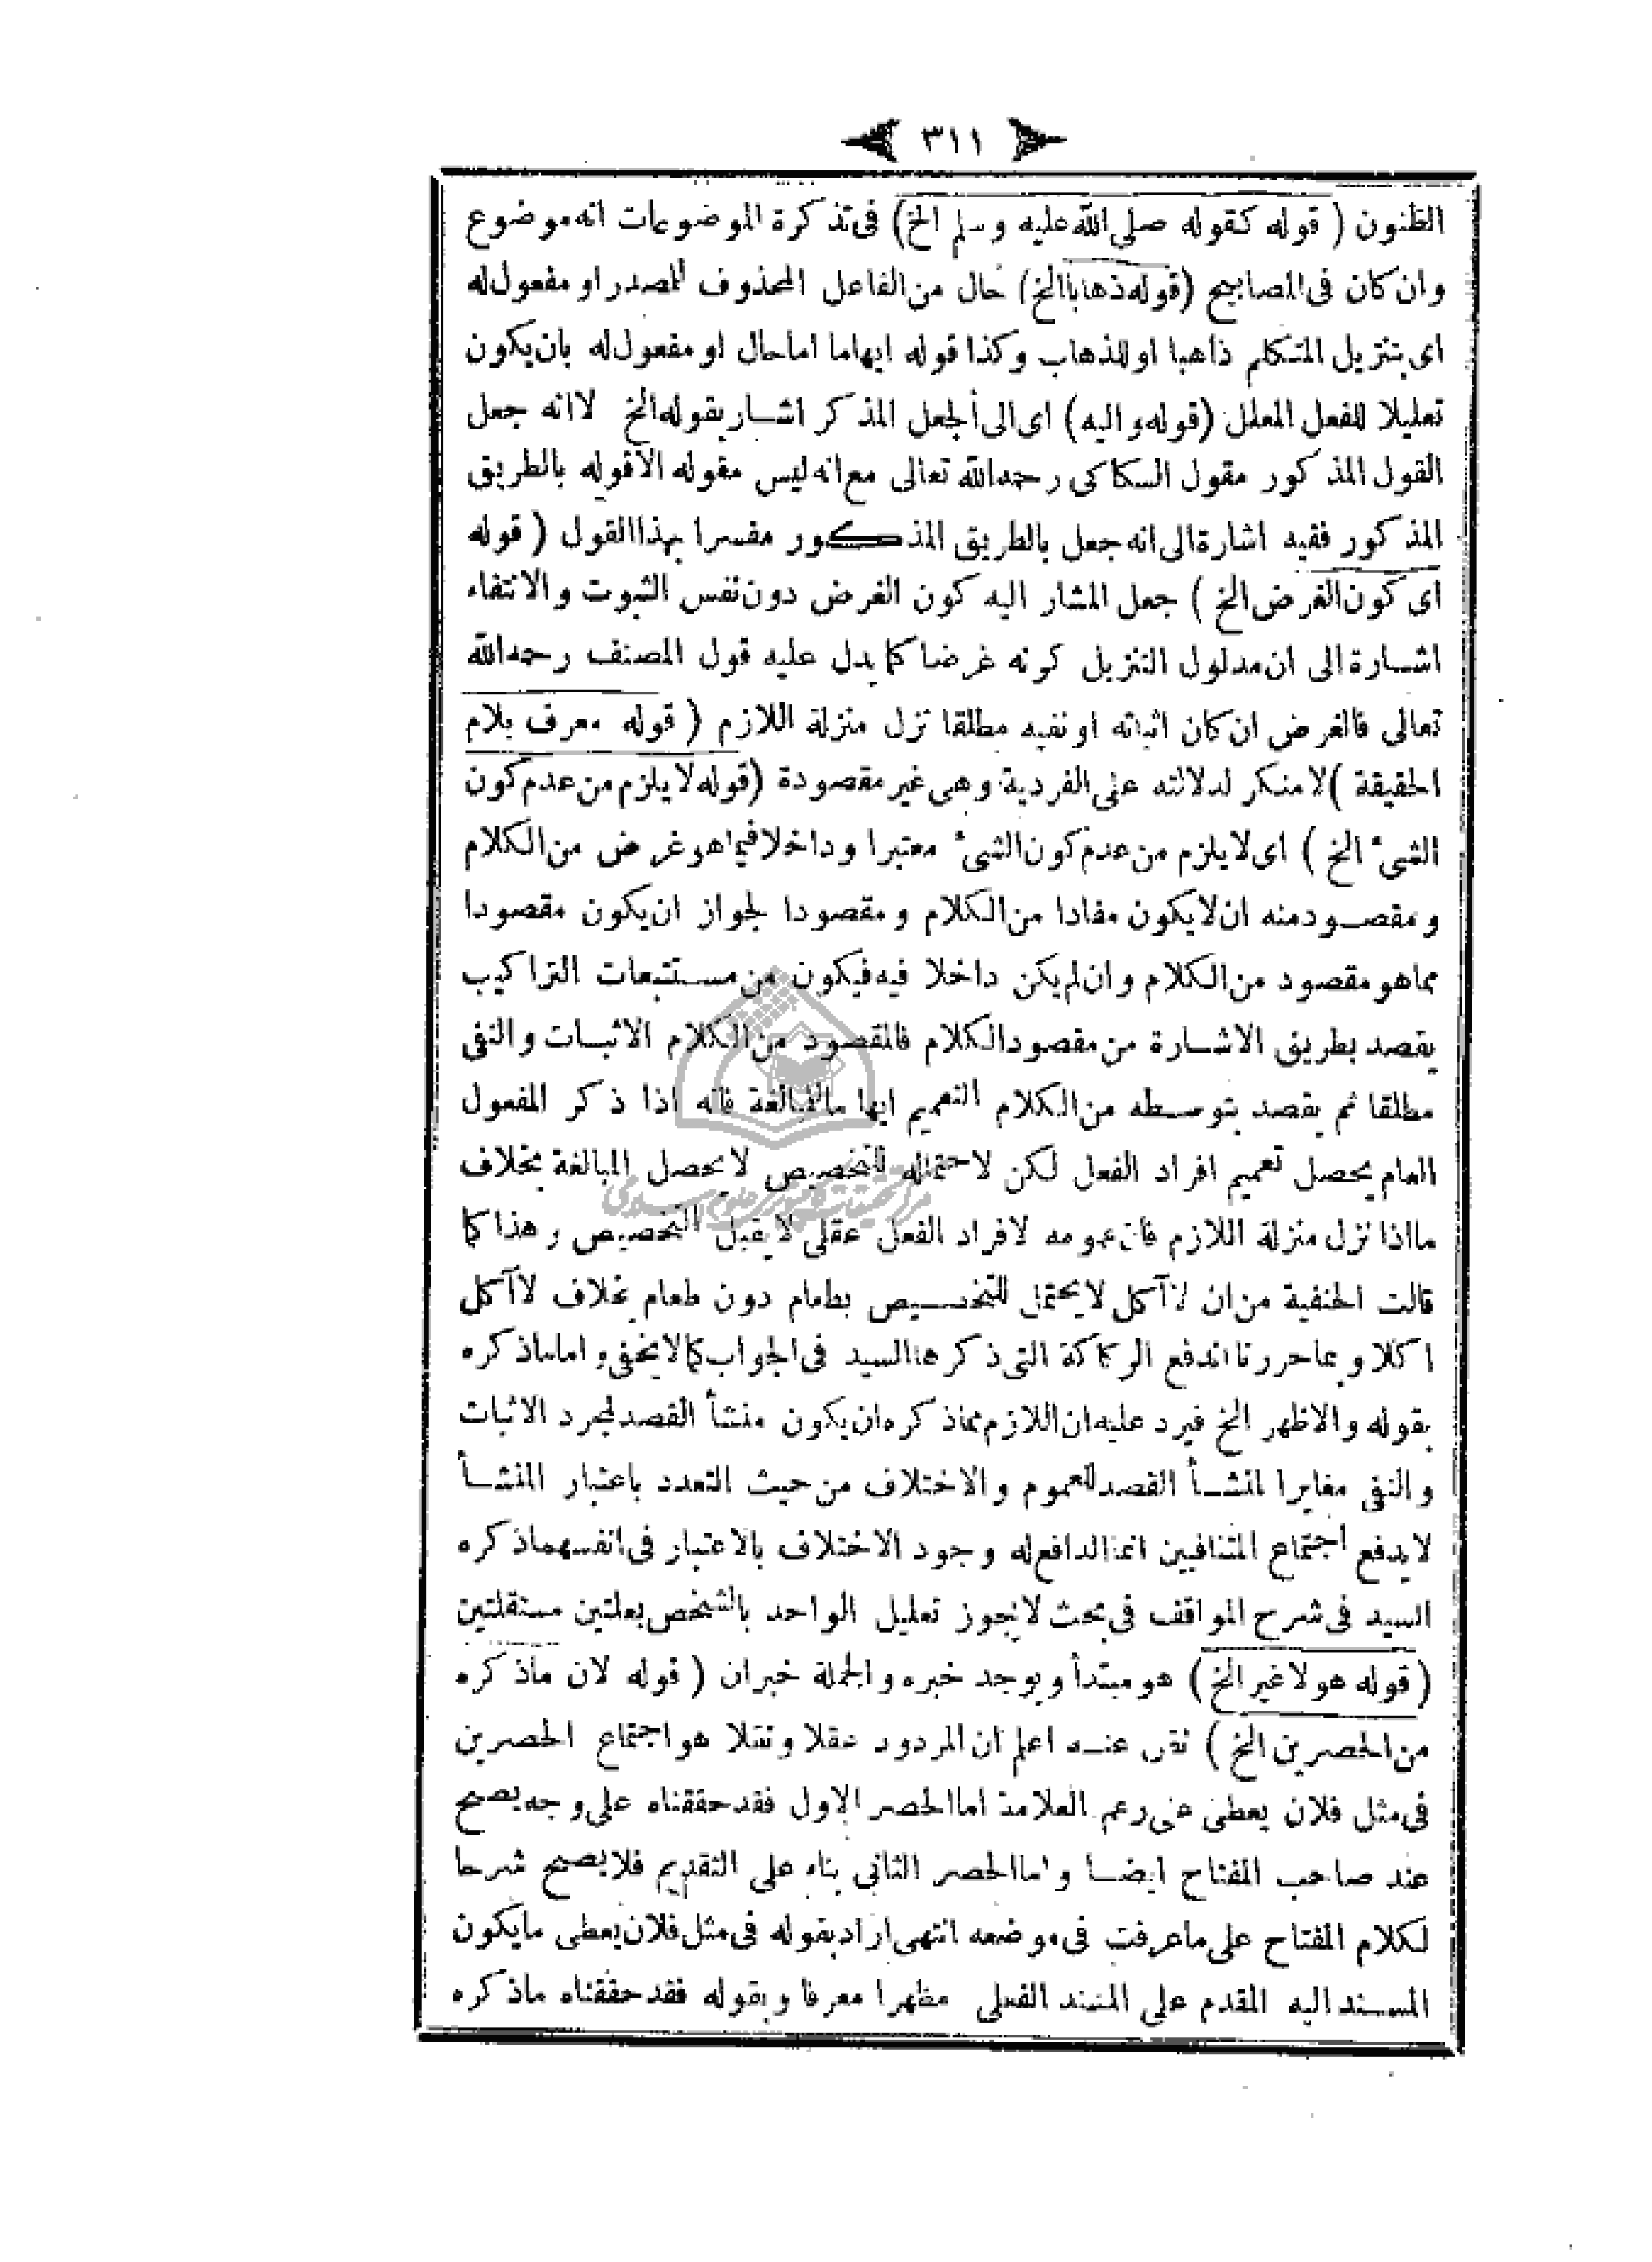 ٣١١
الظنون ( قوله كقوله صلى الله عليه وسلم الخ) فى تذكرة الموضوعات انه موضوع
وان كان فى المصابيح (قوله ذهابا الخ) حال من الفاعل المحذوف للمصدر او مفعول له
اى بتنزيل المتكلم ذاهبا او للذهاب وكذا قوله ايهاما اما حال او مفعول له بان يكون
تعليلا للفعل المعلل (قوله واليه) اى الى الجعل المذكر اشار بقوله الخ لا انه جعل
القول المذكور مقول السكاكى رحمه الله تعالى مع انه ليس مقوله الا قوله بالطريق
المذكور ففيه اشارة الى انه جعل بالطريق المذكور مفسرا بهذا القول ( قوله
اى كون الغرض الخ ) جعل المشار اليه كون الغرض دون نفس الثبوت والانتفاء
اشارة الى ان مدلول التنزيل كونه غرضا كما يدل عليه قول المصنف رحمه الله
تعالى فالغرض ان كان اثباته او نفيه مطلقا نزل منزلة اللازم ( قوله معرف بلام
الحقيقة ) لا منكر لدلالته على الفردية وهى غير مقصودة (قوله لا يلزم من عدم كون
الشىء الخ ) اى لا يلزم من عدم كون الشىء معتبرا وداخلا فيما هو غرض من الكلام
ومقصود منه ان لا يكون مفادا من الكلام ومقصودا لجواز ان يكون مقصودا
مما هو مقصود من الكلام وان لم يكن داخلا فيه فيكون من مستتبعات التراكيب
يقصد بطريق الاشارة من مقصود الكلام فالمقصود من الكلام الاثبات والنفى
مطلقا ثم يقصد بتوسطه من الكلام التعميم ايهاما للمبالغة فانه اذا ذكر المفعول
العام يحصل تعميم افراد الفعل لكن لاحتماله للتخصيص لا يحصل المبالغة بخلاف
ما اذا نزل منزلة اللازم فان عمومه لافراد الفعل عقلى لا يقبل التخصيص وهذا كما
قالت الحنفية من ان لا آكل لا يحتمل للتخصيص بطعام دون طعام بخلاف لا آكل
اكلا وبما حررنا اندفع الركاكة التى ذكرها السيد فى الجواب كما لا يخفى واما ما ذكره
بقوله والاظهر الخ فيرد عليه ان اللازم مما ذكره ان يكون منشأ القصد لمجرد الاثبات
والنفى مغايرا لمنشأ القصد للعموم والاختلاف من حيث التعدد باعتبار المنشأ
لا يدفع اجتماع المتنافيين انما الدافع له وجود الاختلاف بالاعتبار فى انفسهما ذكره
السيد فى شرح المواقف فى بحث لا يجوز تعليل الواحد بالشخص بعلتين مستقلتين
(قوله هو لا غير الخ) هو مبتدأ ويوجد خبره والجملة خبران ( قوله لان ماذكره
من الحصرين الخ ) نقل عنه اعلم ان المردود عقلا ونقلا هو اجتماع الحصرين
فى مثل فلان يعطى على زعم العلامة اما الحصر الاول فقد حققناه على وجه يصح
عند صاحب المفتاح ايضا واما الحصر الثانى بناء على التقديم فلا يصح شرحا
لكلام المفتاح على ما عرفت فى موضعه انتهى اراد بقوله فى مثل فلان يعطى ما يكون
المسند اليه المقدم على المسند الفعلى مظهرا معرفا وبقوله فقد حققناه ماذكره